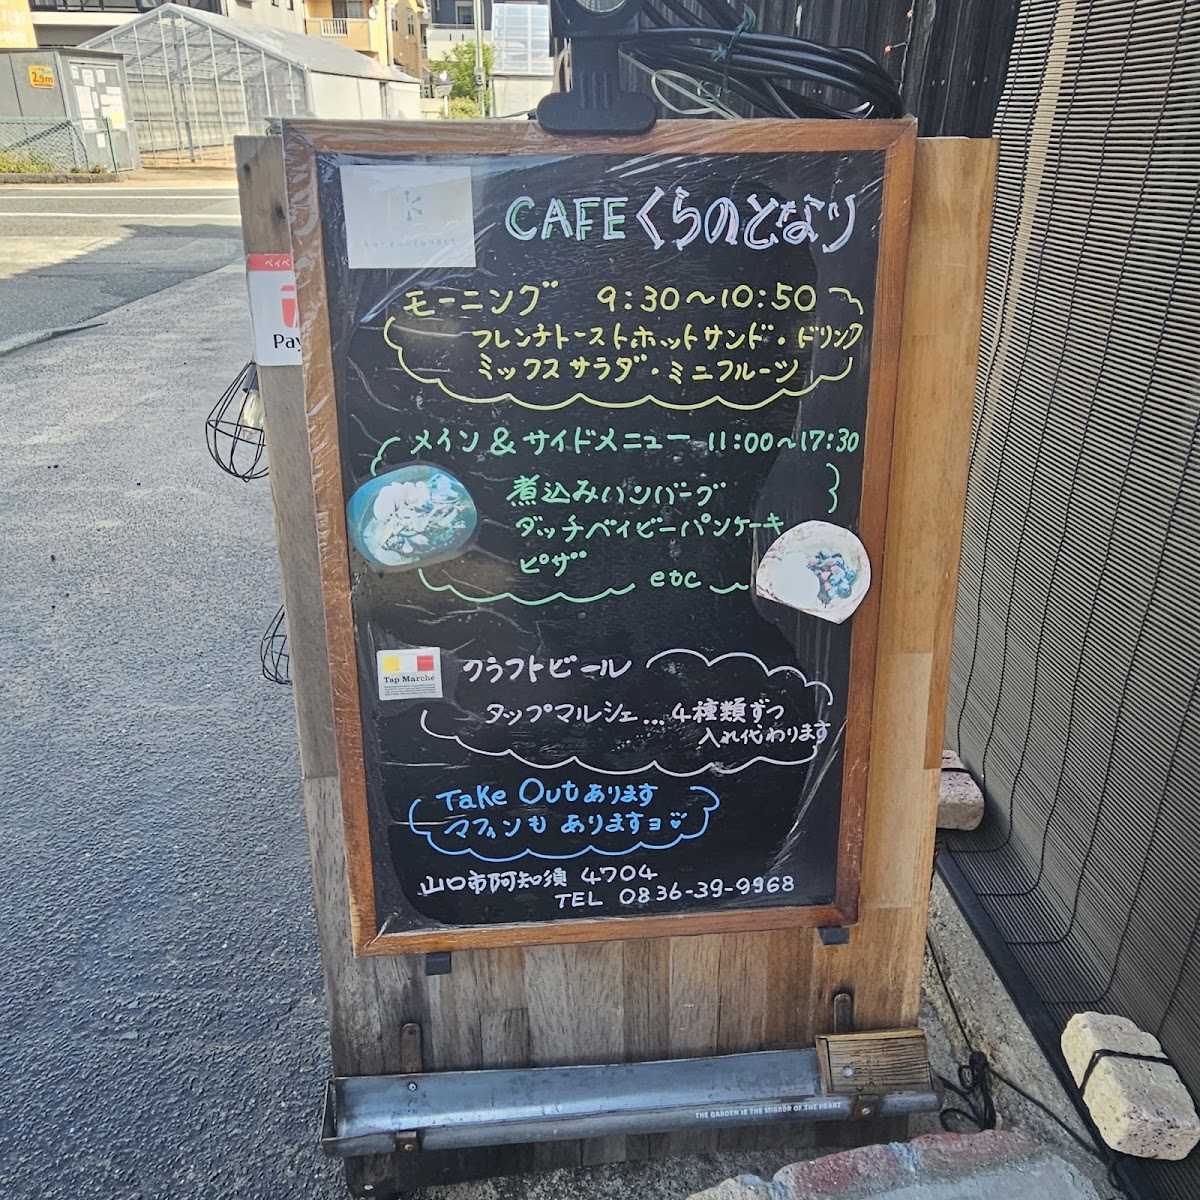 2.9m
CAFE くらのとなり
kuranotonari
ペイペ
Pay
モーニング 9:30～10:50
フレンチトースト・ホットサンド・ドリンク
ミックスサラダ・ミニフルーツ
メイン＆サイドメニュー 11:00～17:30
煮込みハンバーグ
ダッチベイビーパンケーキ
ピザ etc
Tap Marché
クラフトビール
タップマルシェ...4種類ずつ
入れ代わります
Take Out あります
マフィンも ありますョ
山口市阿知須 4704
TEL 0836-39-9968
THE GARDEN IS THE MIRROR OF THE HEART